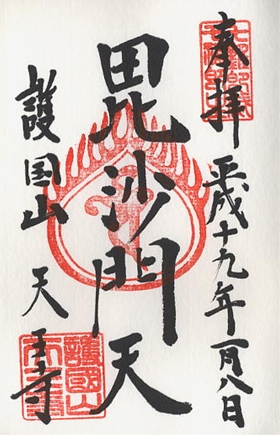 奉拝
平成十九年一月八日
毘沙門天
護国山
天王寺
護國山